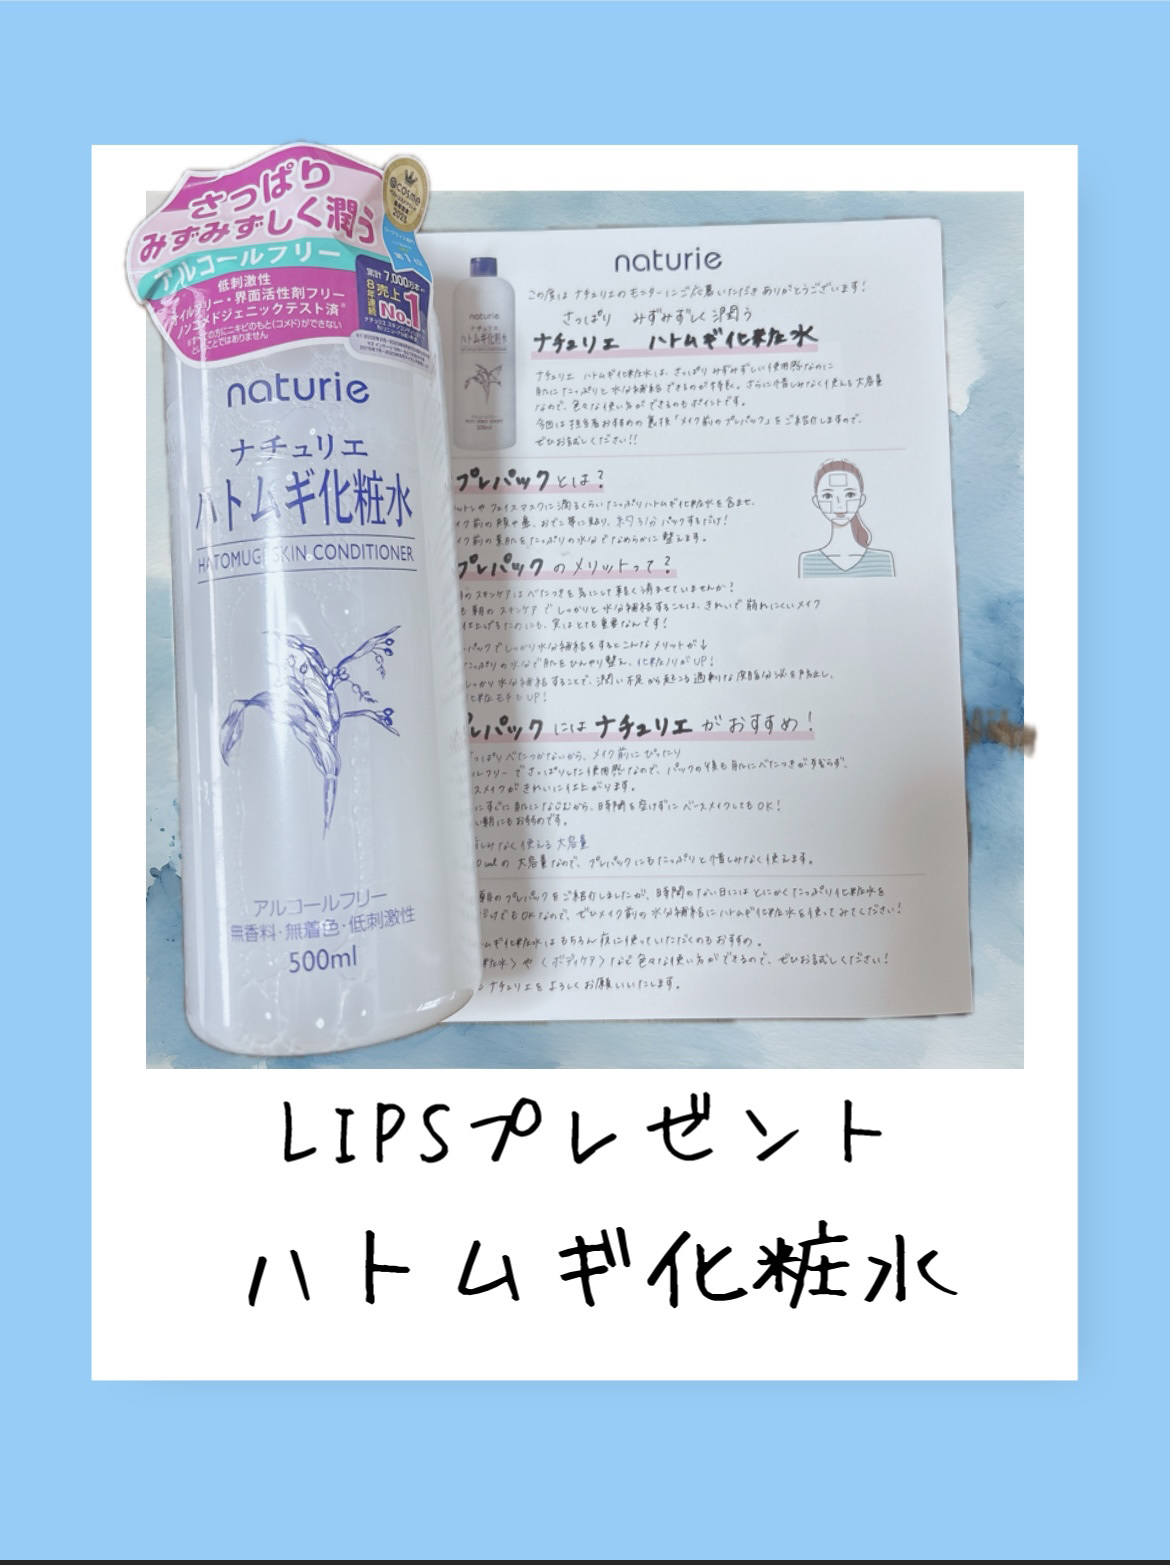 さっぱり
みずみずしく潤う
アルコールフリー
低刺激性
オイルフリー・界面活性剤フリー
ノンコメドジェニックテスト済
※すべての方にニキビのもと(コメド)ができない
ということではありません
@cosme
2023
第1位
累計7,000万本
8年連続
売上
No.1
naturie
ナチュリエ
ハトムギ化粧水
HATOMUGI SKIN CONDITIONER
アルコールフリー
無香料・無着色・低刺激性
500ml
naturie
ナチュリエ
ハトムギ化粧水
naturie
この度は ナチュリエのモニターにご応募いただき ありがとうございます!
さっぱり みずみずしく潤う
ナチュリエ ハトムギ化粧水
ナチュリエ ハトムギ化粧水は、さっぱり みずみずしい使用感なのに
肌に たっぷりと 水分補給 できるのが特長。さらに惜しみなく使える大容量
なので、色々な使い方ができるのもポイントです。
今回は担当者おすすめの裏技「メイク前のプレパック」をご紹介しますので、
ぜひお試しください!!
プレパックとは?
ットンや フェイスマスクに 潤るくらい たっぷり ハトムギ化粧水を含ませ、
イク前の頬や鼻、おでこ等に貼り、約3分 パックするだけ!
イク前の素肌をたっぷりの水分でなめらかに整えます。
プレパックのメリットって?
スキンケアは べたつきを気にして 軽く済ませていませんか!
朝の スキンケアで しっかりと 水分補給することは、きれいで 崩れにくいメイク
仕上げるためにも、実はとても重要なんです!
パックでしっかり水分補給をするとこんなメリットが↓
たっぷりの水分で肌をひんやり整え、化粧ノリがUP!
しっかり水分補給することで、潤い不足から起こる過剰な皮脂分泌を防止し、
化粧モチもUP!
レパックにはナチュリエがおすすめ!
っぱり べたつかないから、メイク前にぴったり
ルフリーで さっぱりした使用感なので、パックの後も肌にべたつきが残らず、
スメイクがきれいに仕上がります。
にすぐに肌になじむから、時間を空けずに ベースメイクしてもOK!
い朝にもお勧めです。
しみなく使える大容量
0mlの 大容量なので、プレパックにもたっぷりと惜しみなく使えます。
朝のプレパックをご紹介しましたが、時間のない日には とにかくたっぷり化粧水を
けでもOKなので、ぜひメイク前の水分補給にハトムギ化粧水を使ってみてください!
ムギ化粧水は もちろん 夜に使っていただくのも おすすめ。
粧水〉や〈ボディケア〉など色々な使い方ができるので、ぜひお試しください!
ナチュリエをよろしくお願いいたします。
LIPSプレゼント
ハトムギ化粧水